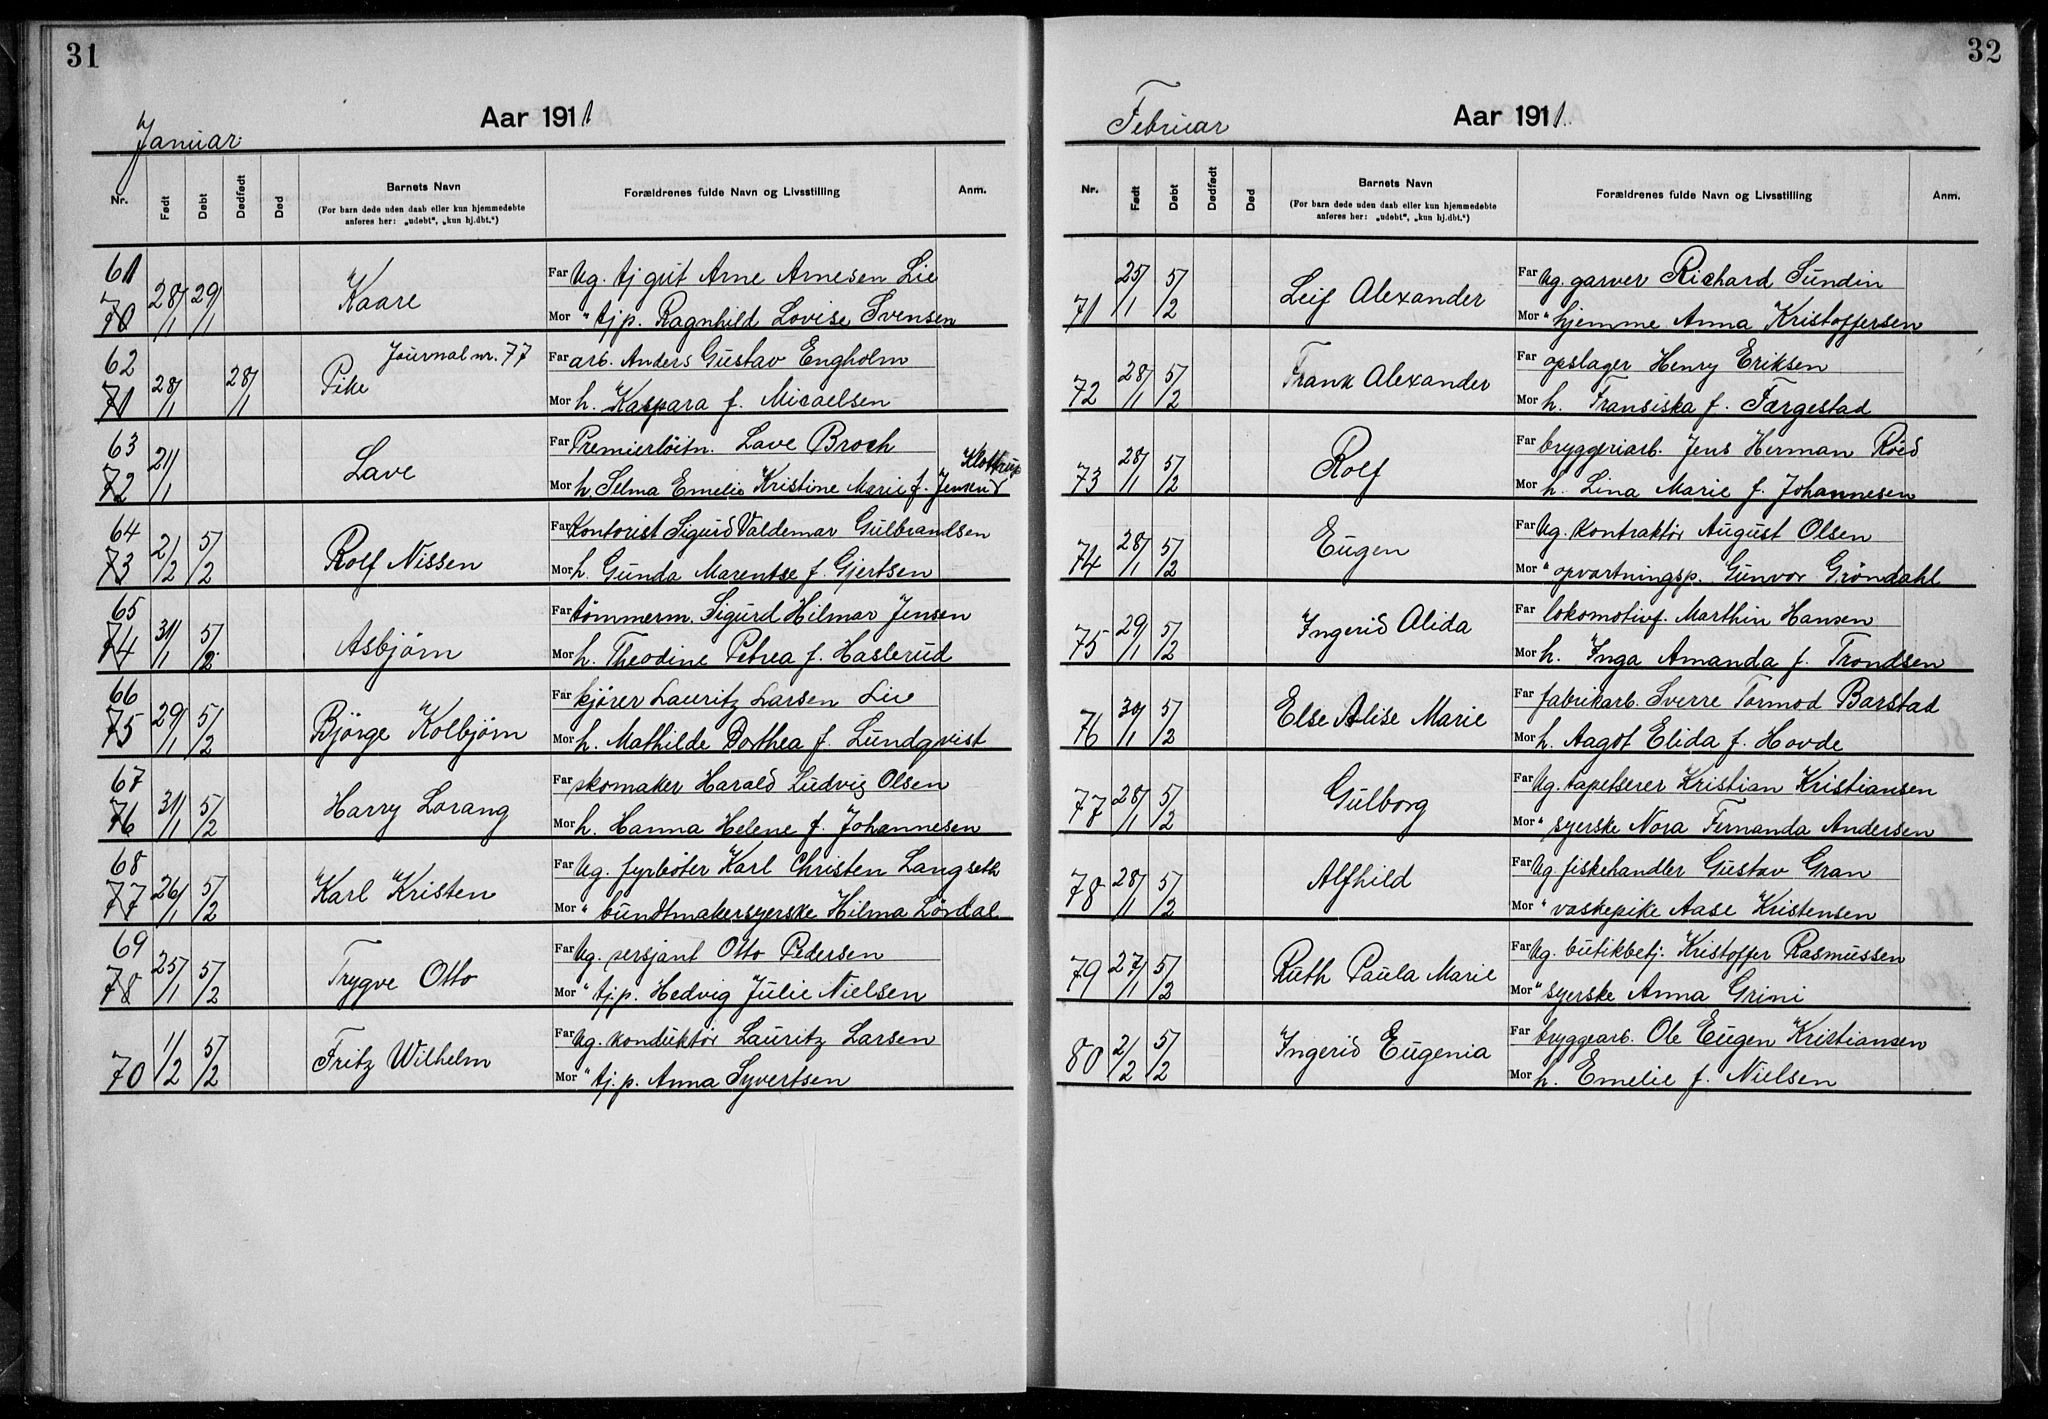 31
Januar.
Aar 1911
Nr. Født Døbt Dødfødt Død Barnets Navn Forældrenes fulde Navn og Livsstilling Anm.
(For barn døde uden daab eller kun hjemmedøbte
anføres her: „udøbt“, „kun hj.dbt.“)
61 Far Ug. tj gut Arne Arnesen Lie
70 28/1 29/1 Kaare Mor " tjp. Ragnhild Lovise Svensen
62 Journal nr. 77 Far arb. Anders Gustav Engholm
71 28/1 28/1 Pike Mor h. Kaspara f. Micaelsen
63 Far Premierlöitn. Lave Broch
72 21/1 Lave Mor h. Selma Emelie Kristine Marie f. Jensen
64 Far Kontorist Sigurd Valdemar Gulbrandsen
73 2/2 5/2 Rolf Nissen Mor h. Gunda Marentse f. Gjertsen
65 Far tömmerm. Sigurd Hilmar Jensen
74 31/1 5/2 Asbjörn Mor h. Theodine Petrea f. Haslerud
66 Far kjörer Lauritz Larsen Lie
75 29/1 5/2 Björge Kolbjörn Mor h. Mathilde Dorthea f. Lundqvist
67 Far skomaker Harald Ludvig Olsen
76 31/1 5/2 Harry Lorang Mor h. Hanna Helene f. Johannesen
68 Far Ug. fyrböter Karl Christen Langseth
77 26/1 5/2 Karl Kristen Mor " bundtmakersyerske Hilma Lördal
69 Far Ug. sersjant Otto Pedersen
78 25/1 5/2 Trygve Otto Mor " tj.p. Hedvig Julie Nielsen
Far Ug. konduktör Lauritz Larsen
70 1/2 5/2 Fritz Wilhelm Mor " tj.p. Anna Syvertsen
32
Februar
Aar 1911.
Nr. Født Døbt Dødfødt Død Barnets Navn Forældrenes fulde Navn og Livsstilling Anm.
(For barn døde uden daab eller kun hjemmedøbte
anføres her: „udøbt“, „kun hj.dbt.“)
Far Ug. garver Richard Sundin
71 25/1 5/2 Leif Alexander Mor " hjemme Anna Kristoffersen
Far opslager Henry Eriksen
72 28/1 5/2 Frank Alexander Mor h. Fransiska f. Færgestad
Far bryggeriarb. Jens Herman Röed
73 28/1 5/2 Rolf Mor h. Lina Marie f. Johannesen
Far Ug. Kontraktör August Olsen
74 28/1 5/2 Eugen Mor " opvartningsp. Gunvor Gröndahl
Far lokomotivf. Marthin Hansen
75 29/1 5/2 Ingerid Alida Mor h. Inga Amanda f. Trondsen
Far fabrikarb. Sverre Tormod Barstad
76 30/1 5/2 Else Alise Marie Mor h. Aagot Elida f. Hovde
Far Ug. tapetserer Kristian Kristiansen
77 28/1 5/2 Gulborg Mor " syerske Nora Fernanda Andersen
Far Ug. fiskehandler Gustav Gran
78 28/1 5/2 Alfhild Mor " vaskepike Aase Kristensen
Far Ug. butikbetj: Kristoffer Rasmussen
79 27/1 5/2 Ruth Paula Marie Mor " syerske Anna Grini
Far bryggearb. Ole Eugen Kristiansen
80 2/2 5/2 Ingerid Eugenia Mor h. Emelie f. Nielsen